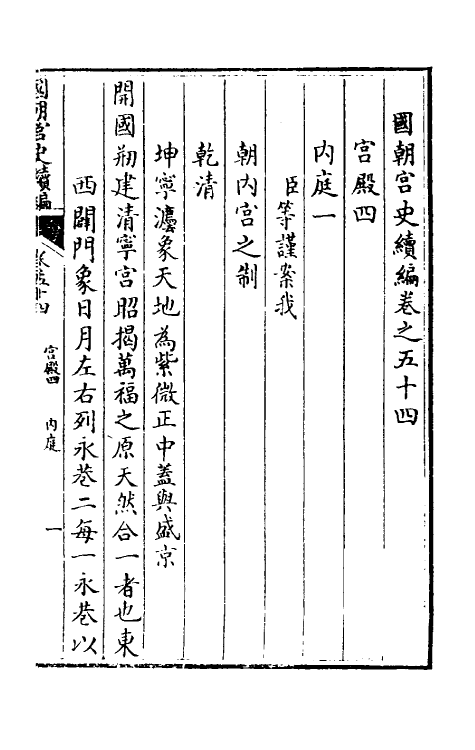 國朝宮史續編卷之五十四
宮殿四
內庭一
臣等謹案我
朝內宮之制
乾清
坤寧灋象天地為紫微正中蓋與盛京
開國剏建清寧宮昭揭萬福之原天然合一者也東
西闢門象日月左右列永巷二每一永巷以
國朝宮史續編
卷五十四
宮殿四 內庭
一